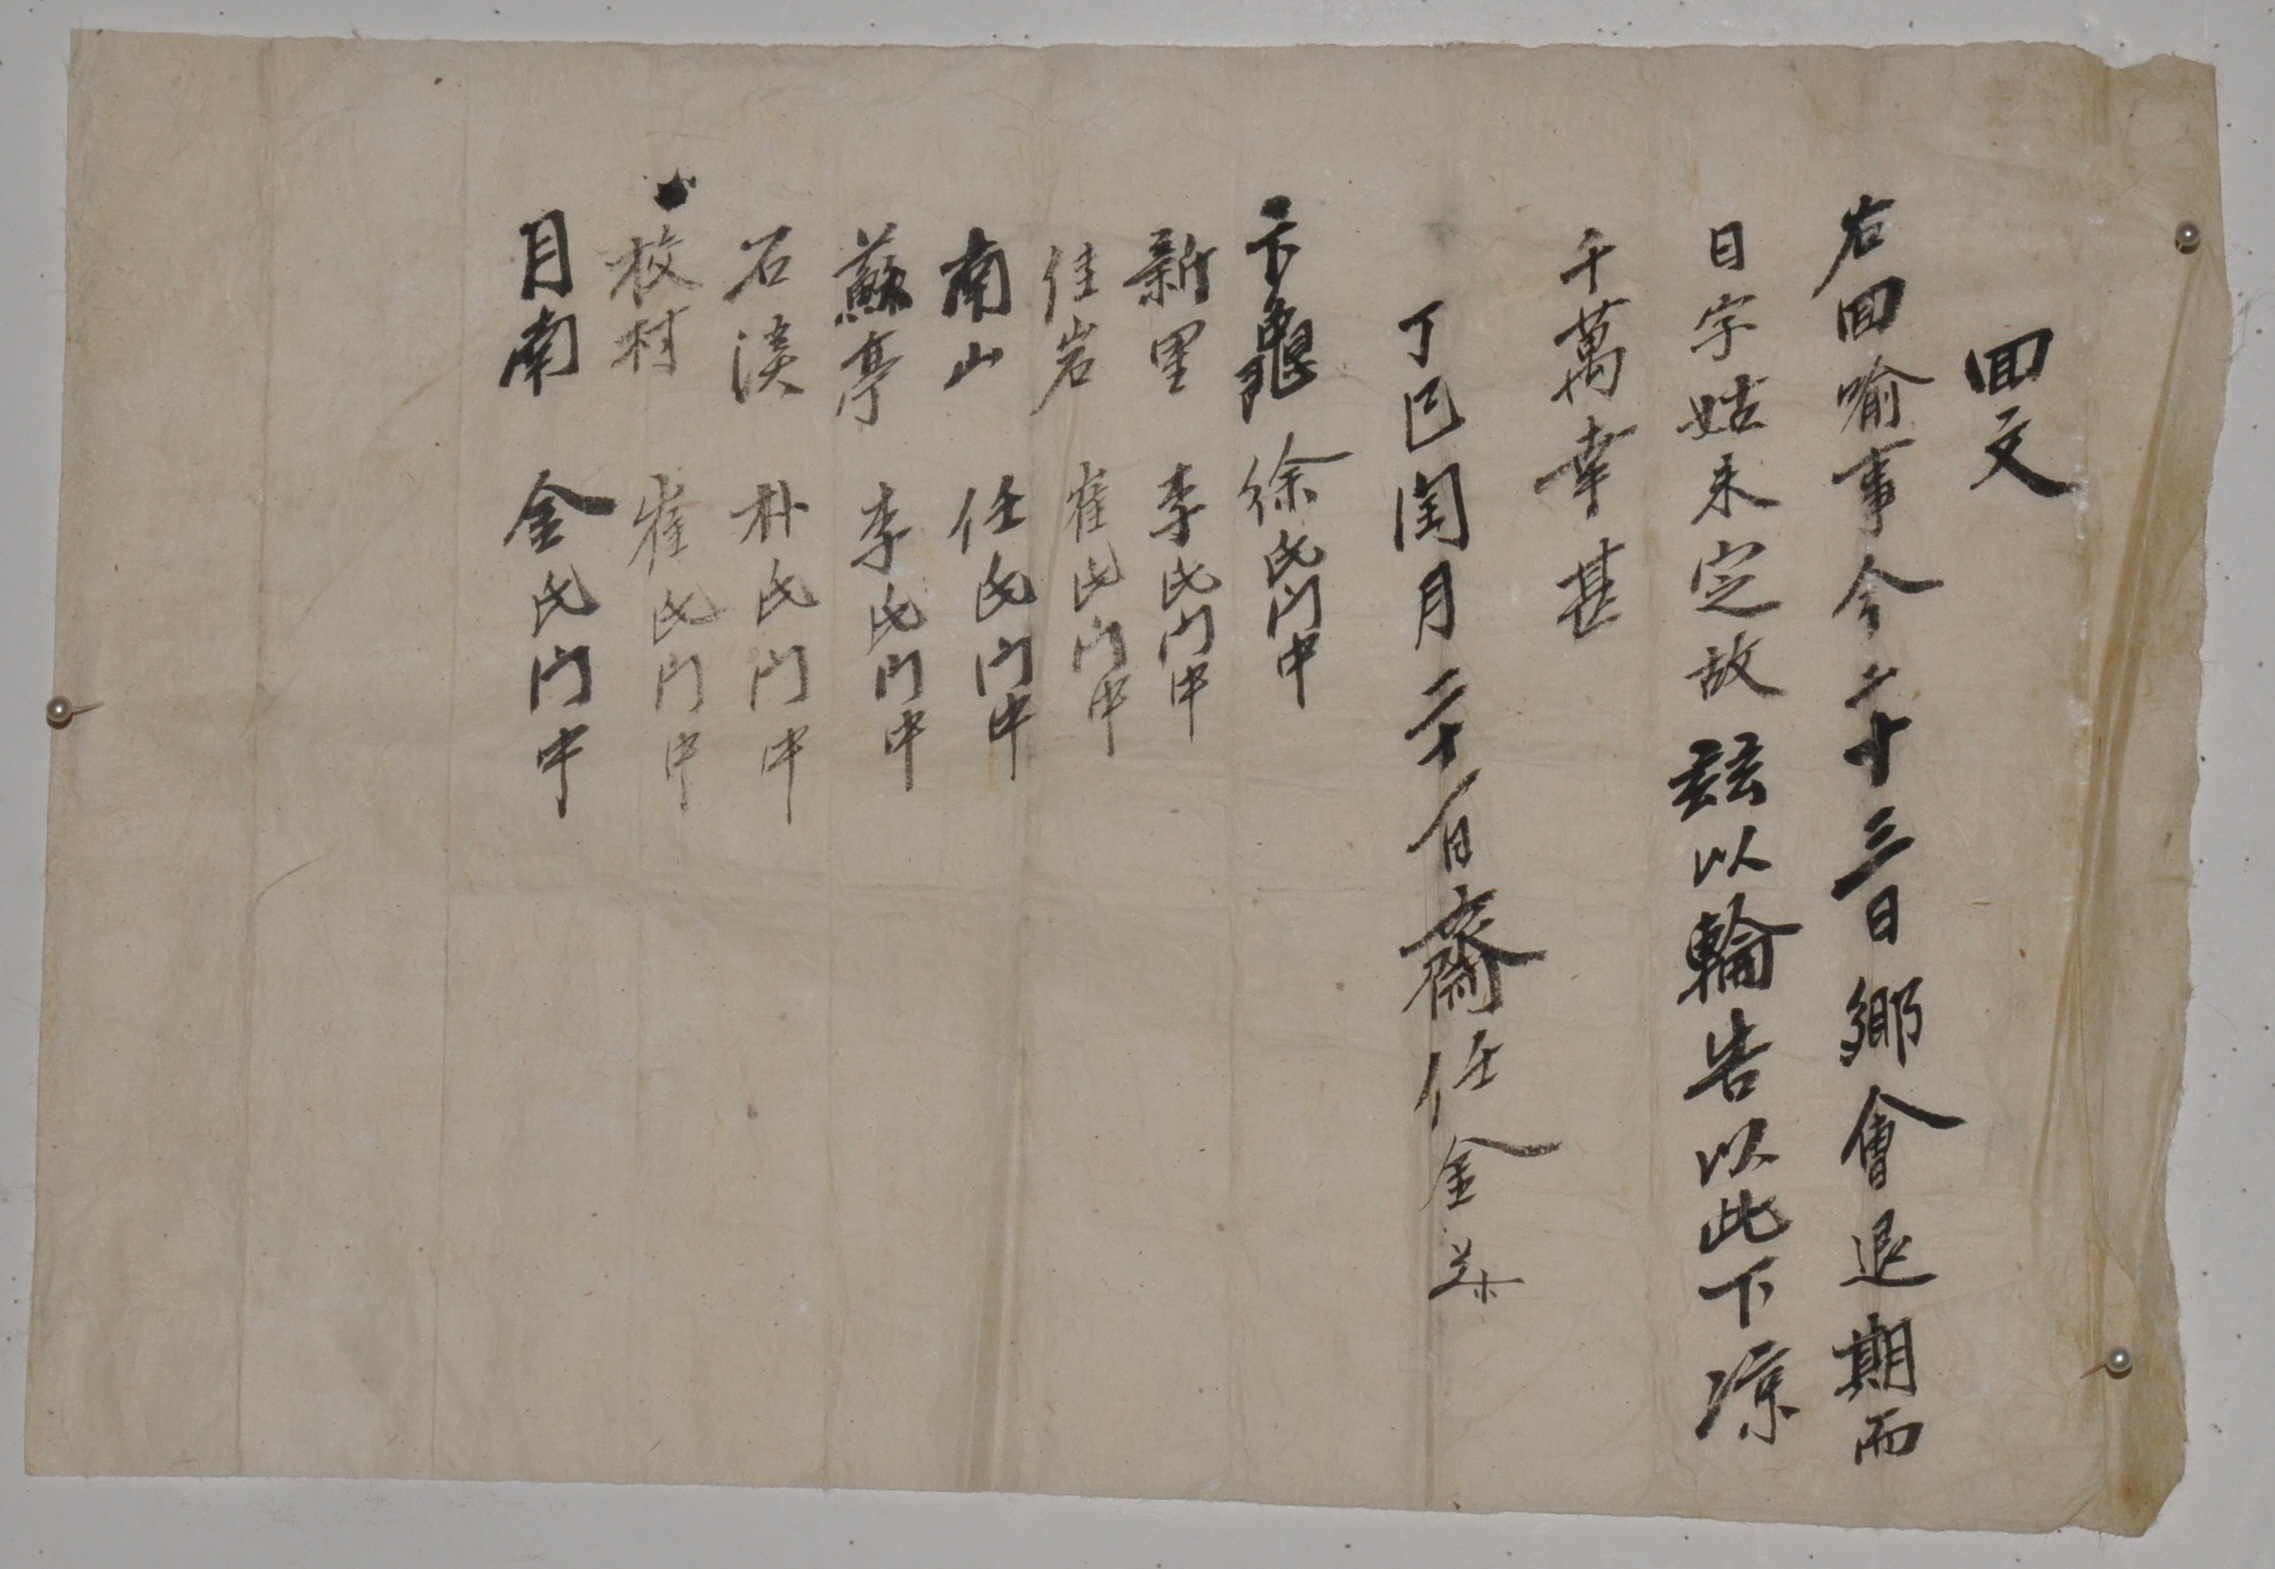 回文
右回喻事今二十三日鄕會退期而
日字姑未定故玆以輪告以此下凉
千萬幸甚
丁巳閏月二十日齋任金
下龜 徐氏門中
新里 李氏門中
佳岩 崔氏門中
南山 任氏門中
蘇亭 李氏門中
石溪 朴氏門中
校村 崔氏門中
月南 金氏門中